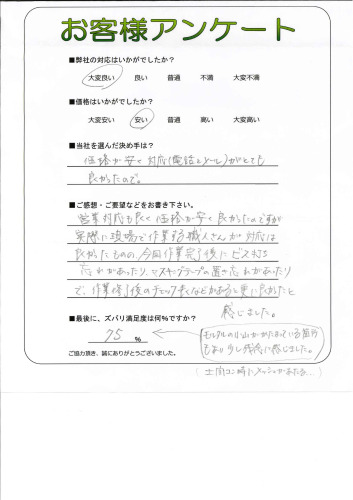 お客様アンケート
■弊社の対応はいかがでしたか？
大変良い 良い 普通 不満 大変不満
■価格はいかがでしたか？
大変安い 安い 普通 高い 大変高い
■当社を選んだ決め手は？
価格が安く対応(電話とメール)がとても
良かったので。
■ご感想・ご要望などをお書き下さい。
営業対応も良く価格が安く良かったのですが
実際に現場で作業する職人さんが対応は
良かったものの、今回作業完了後にビス打ち
忘れがあったり、マスキングテープの置き忘れがあったり
で、作業終了後のチェック表などがあると更に良かったと
感じました。
■最後に、ズバリ満足度は何%ですか？
75 %
モルタルの仕上がかたよっている箇所
もあり少し残念に感じました。
ご協力頂き、誠にありがとうございました。
(土間コン時にメッシュがあたる…)